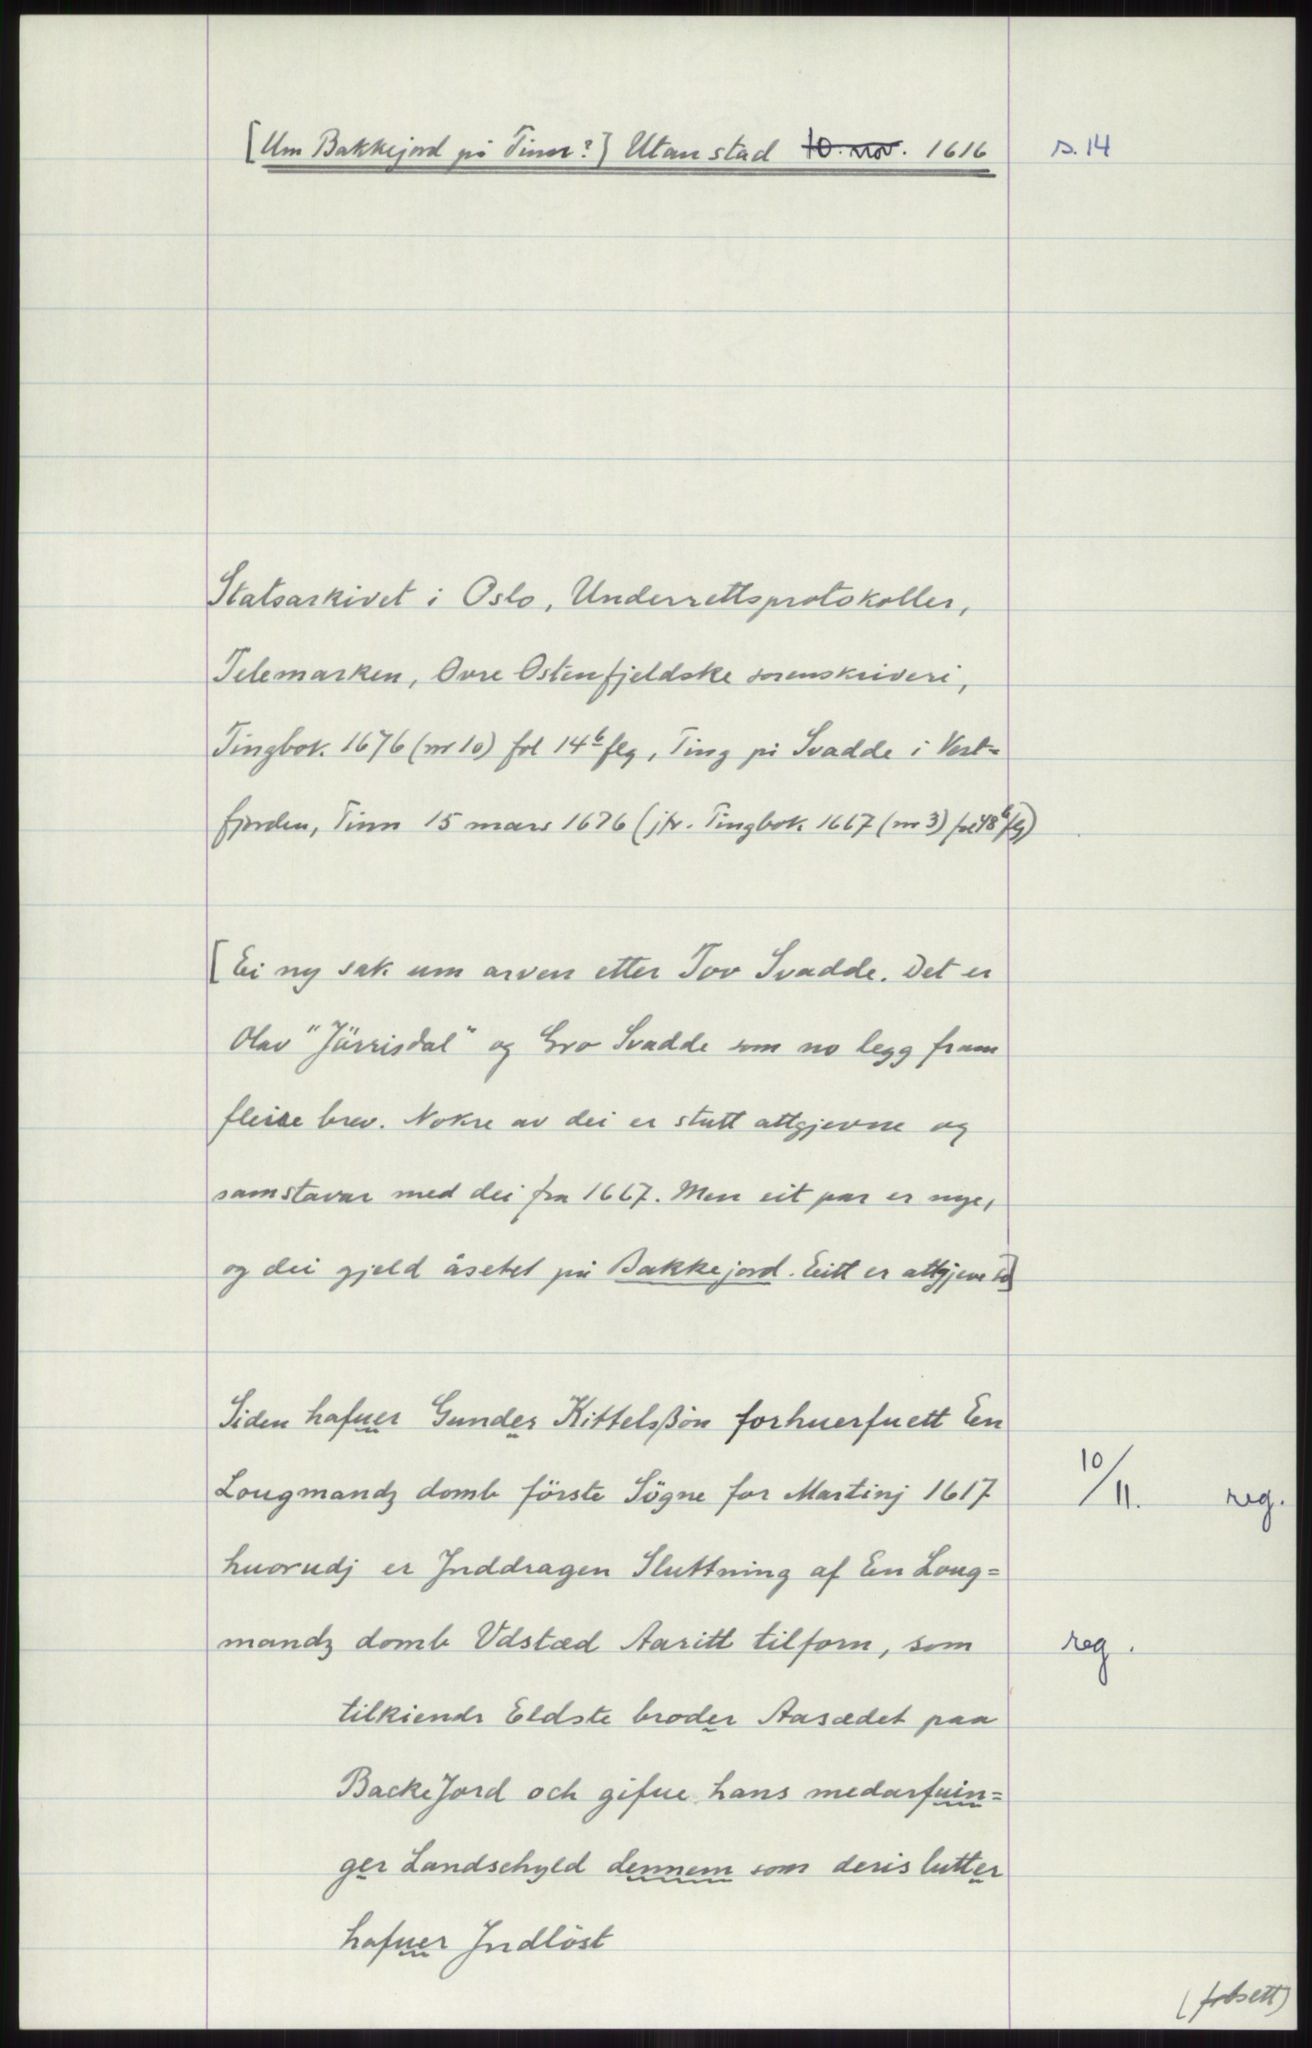 [Um Bakkejord på Tinn?] Utan stad 10. nov. 1616 s. 14
Statsarkivet i Oslo, Underrettsprotokoller,
Telemarken, Øvre Østenfjeldske sorenskriveri,
Tingbok 1676 (nr 10) fol 14b flg, Ting på Svadde i Vest=
fjorden, Tinn 15 mars 1676 (jfr. Tingbok 1667 (nr 3) fol 48b flg)
[Ei ny sak um arven etter Tov Svadde. Det er
Olav "Järrisdal" og Gro Svadde som no legg fram
fleire brev. Nokre av dei er stutt attgjevne og
samstavar med dei fra 1667. Men eit par er nye,
og dei gjeld åsetet på Bakkejord. Eitt er attgjeve so]
Siden hafuer Gunder Kittelsßön forhuerfuett En
Lougmandz domb förste Sögne for Martinj 1617 10/11. reg.
huorudj er Jnddragen Sluttning af En Loug=
mandz domb Vdstæd Aaritt tilforn, som reg.
tilkiendr Eldste broder Aasædet paa
BackeJord och gifue hans medarfuin=
ger Landschyld dennem som deris lutter
hafuer Jndlöst
(frbsett)